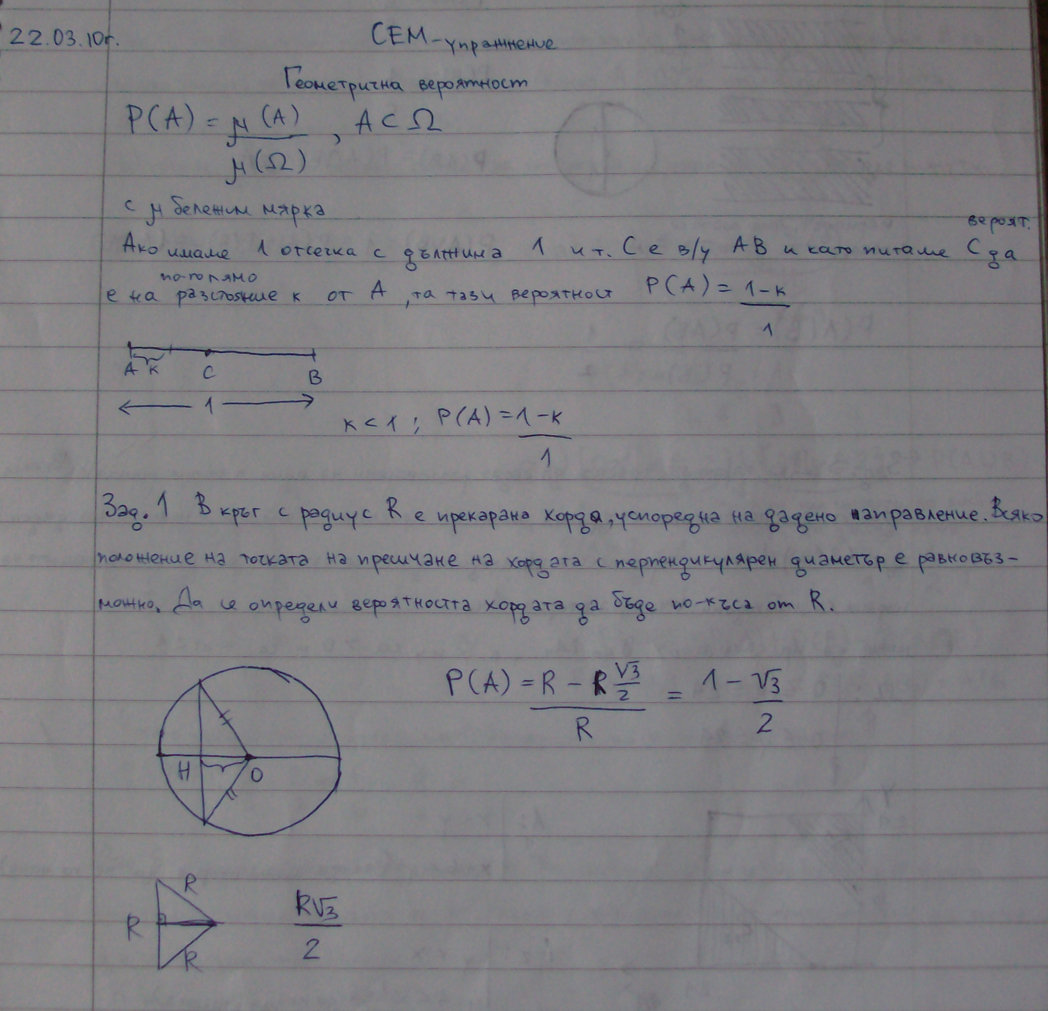 22.03.10г.
СЕМ-упражнение
Геометрична вероятност
P(A) = μ(A)/μ(Ω), A⊂Ω
с μ бележим мярка
Ако имаме 1 отсечка с дължина 1 и т. C е в/у AB и като питаме вероят. C да
е на по-голямо разстояние к от A, та тази вероятност P(A) = (1-к)/1
A к C B
1
к < 1 ; P(A) = (1-к)/1
Зад. 1 В кръг с радиус R е прекарана хорда, успоредна на дадено направление. Всяко
положение на точката на пресичане на хордата с перпендикулярен диаметър е равновъз-
можно. Да се определи вероятността хордата да бъде по-къса от R.
P(A) = (R - R √3/2)/R = 1 - √3/2
H O
R
R
R
R√3/2